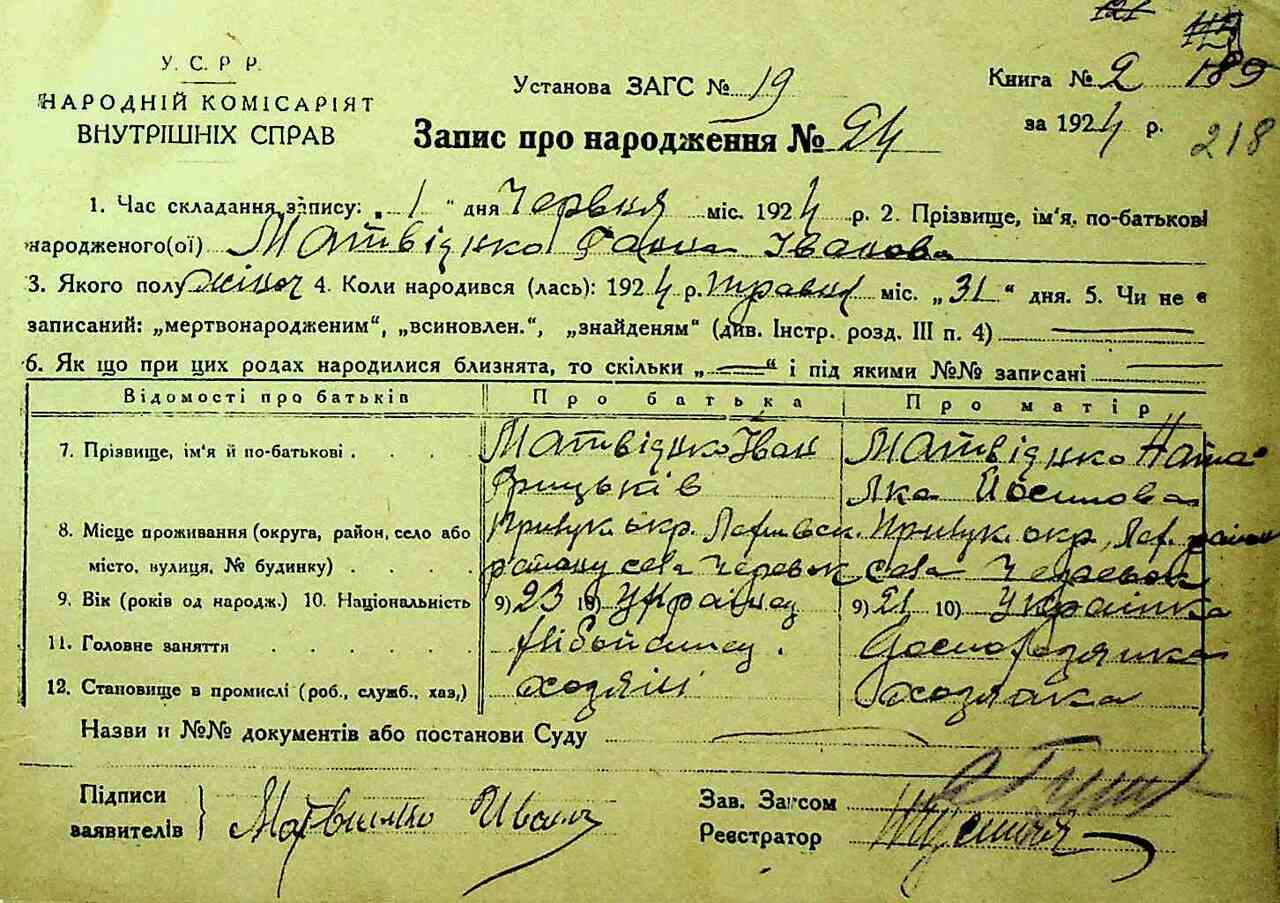 У. С. Р Р.
НАРОДНІЙ КОМІСАРІЯТ
ВНУТРІШНІХ СПРАВ
Установа ЗАГС № 19
Книга № 2 189
за 1924 р. 218
Запис про народження № 94
1. Час складання запису: „ 1 " дня Червня міс. 1924 р. 2. Прізвище, ім'я, по-батькові
народженого(ої) Матвієнко Ганна Іванова
3. Якого полу жіноч 4. Коли народився (лась): 1924 р. травня міс. „31" дня. 5. Чи не є
записаний: „мертвонародженим", „всиновлен.", „знайденям" (див. Інстр. розд. III п. 4)
6. Як що при цих родах народилися близнята, то скільки „ — " і під якими №№ записані
Відомості про батьків Про батька Про матір
7. Прізвище, ім'я й по-батькові . . . . Матвієнко Іван Матвієнко Ната
Грицьків лка Йосипова
8. Місце проживання (округа, район, село або Прилук. окр. Прилук. окр.
місто, вулиця, № будинку) . . . . району села села
9. Вік (років од народж.) 10. Національність 9) 23 10) Українец 9) 21 10) Українка
11. Головне заняття . . . . . . Хлібопашец. Господаянка
12. Становище в промислі (роб., служб., хаз,) хозяїн хозяйка
Назви и №№ документів або постанови Суду
Підписи
заявителів
Матвиенко Иван
Зав. Загсом
Реєстратор